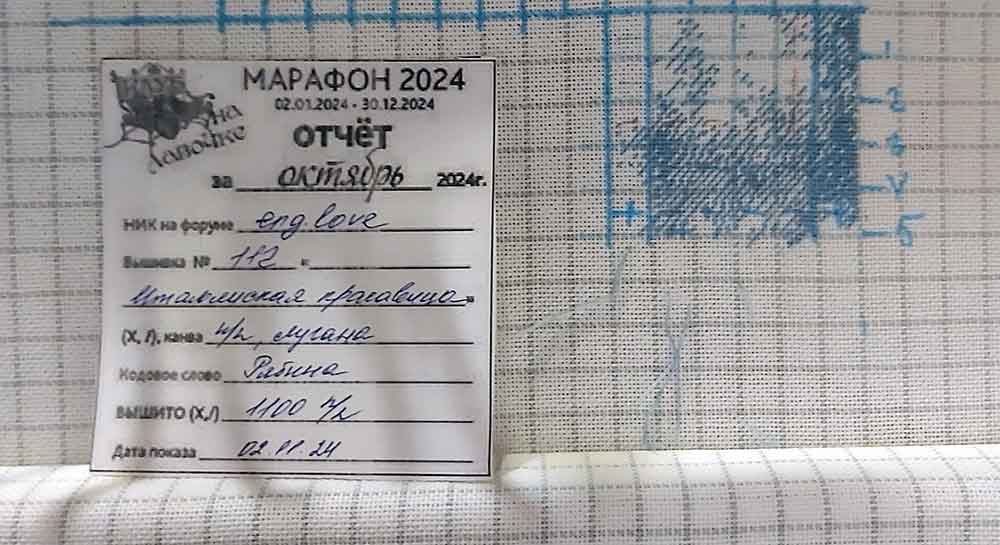 МАРАФОН 2024
02.01.2024 - 30.12.2024
на лавочке
ОТЧЁТ
за октябрь 2024г.
НИК на форуме eng.love
Вышивка № 112 "
Итальянская красавица"
(X, /), канва п/к, лугана
Кодовое слово Рябина
ВЫШИТО (X,/) 1100 п/к
Дата показа 02.11.24
1
2
5